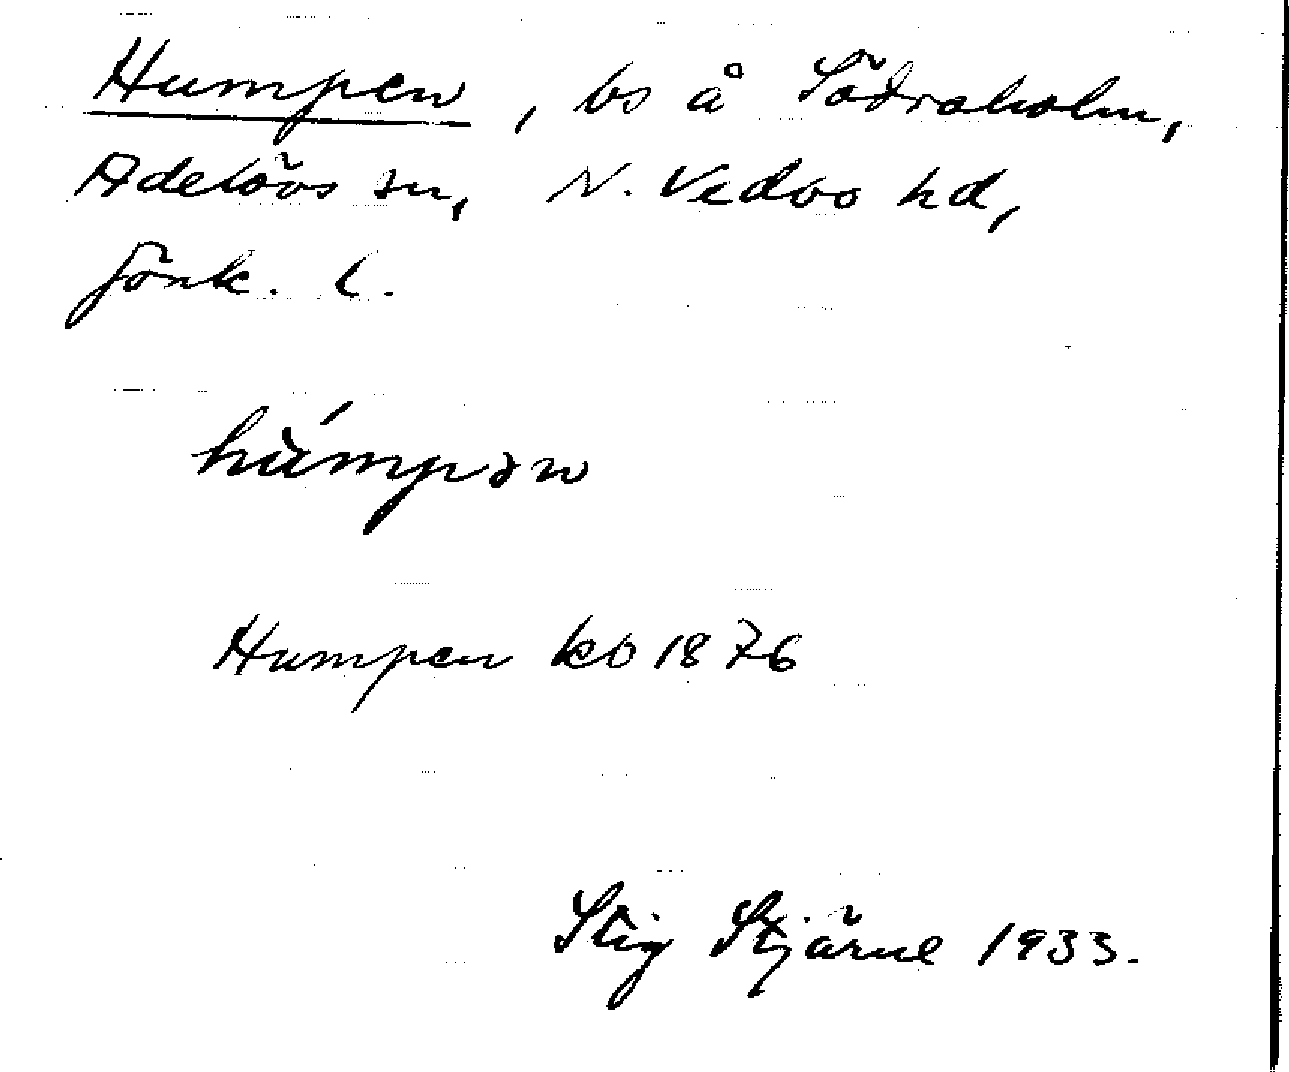 Humpen, bs å Södraholm,
Adelövs sn, N. Vedbo hd,
Jönk. l.
hùmpən
Humpen kb 1876
Stig Stjärne 1933.